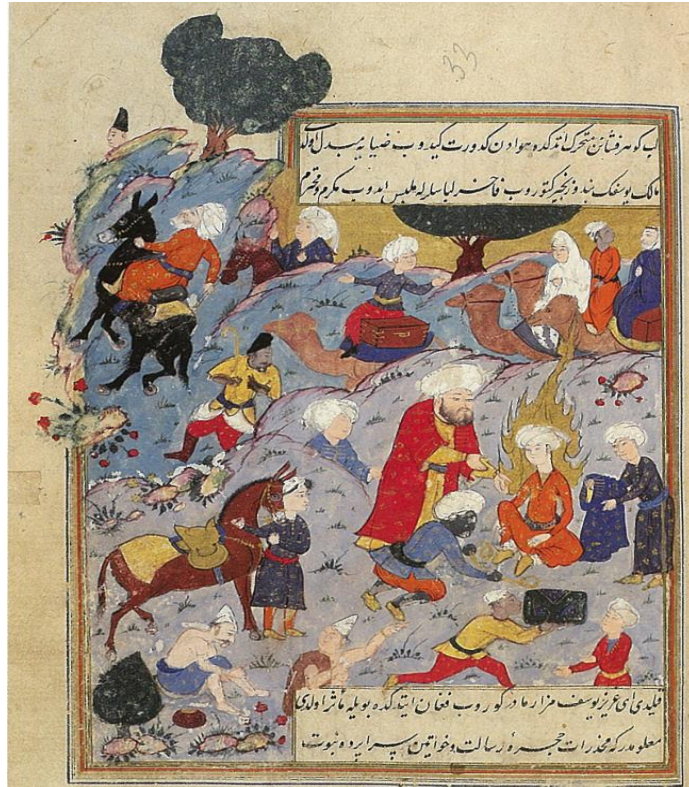 33
لب کوهرفشانن متحرک اتدکده هوادن کدورت کیدوب ضیایه مبدل اولدی
مالک یوسفک بند و زنجیر کتوروب فاخر لباسلرله ملبس ایدوب مکرم و محترم
قیلدی ای عزیز یوسف مزار مادر کوروب فغان ایتدکده بویله مأثر اولدی
معلومدر که مخدرات حجرهٔ رسالت و خواتین سراپردهٔ نبوت